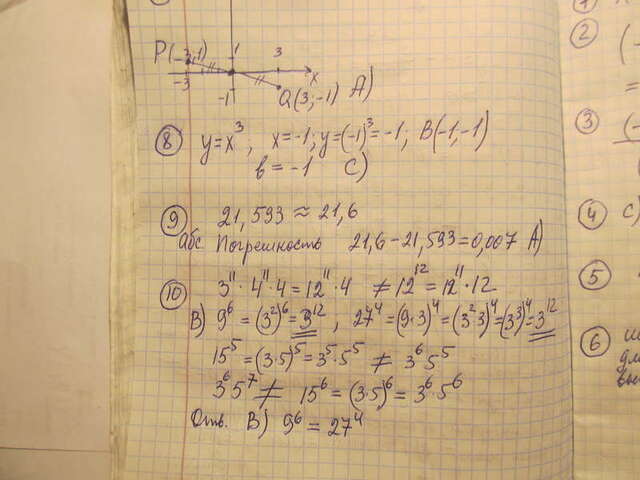 ①
②
(-
=
③
(-
④
C)
⑤
⑥
P(-3;1)
1
3
X
-3
-1
Q(3;-1) A)
⑧ y=x³, x=-1; y=(-1)³=-1; B(-1;-1)
b=-1 C)
⑨ 21,593≈21,6
Абс Погрешность 21,6-21,593=0,007 A)
⑩ 3¹¹·4¹¹·4=12¹¹·4≠12¹²=12¹¹·12
B) 9⁶=(3²)⁶=3¹², 27⁴=(9·3)⁴=(3²·3)⁴=(3³)⁴=3¹²
15⁵=(3·5)⁵=3⁵·5⁵ ≠ 3⁶5⁵
3⁶5⁷ ≠ 15⁶=(3·5)⁶=3⁶·5⁶
Отв. B) 9⁶=27⁴